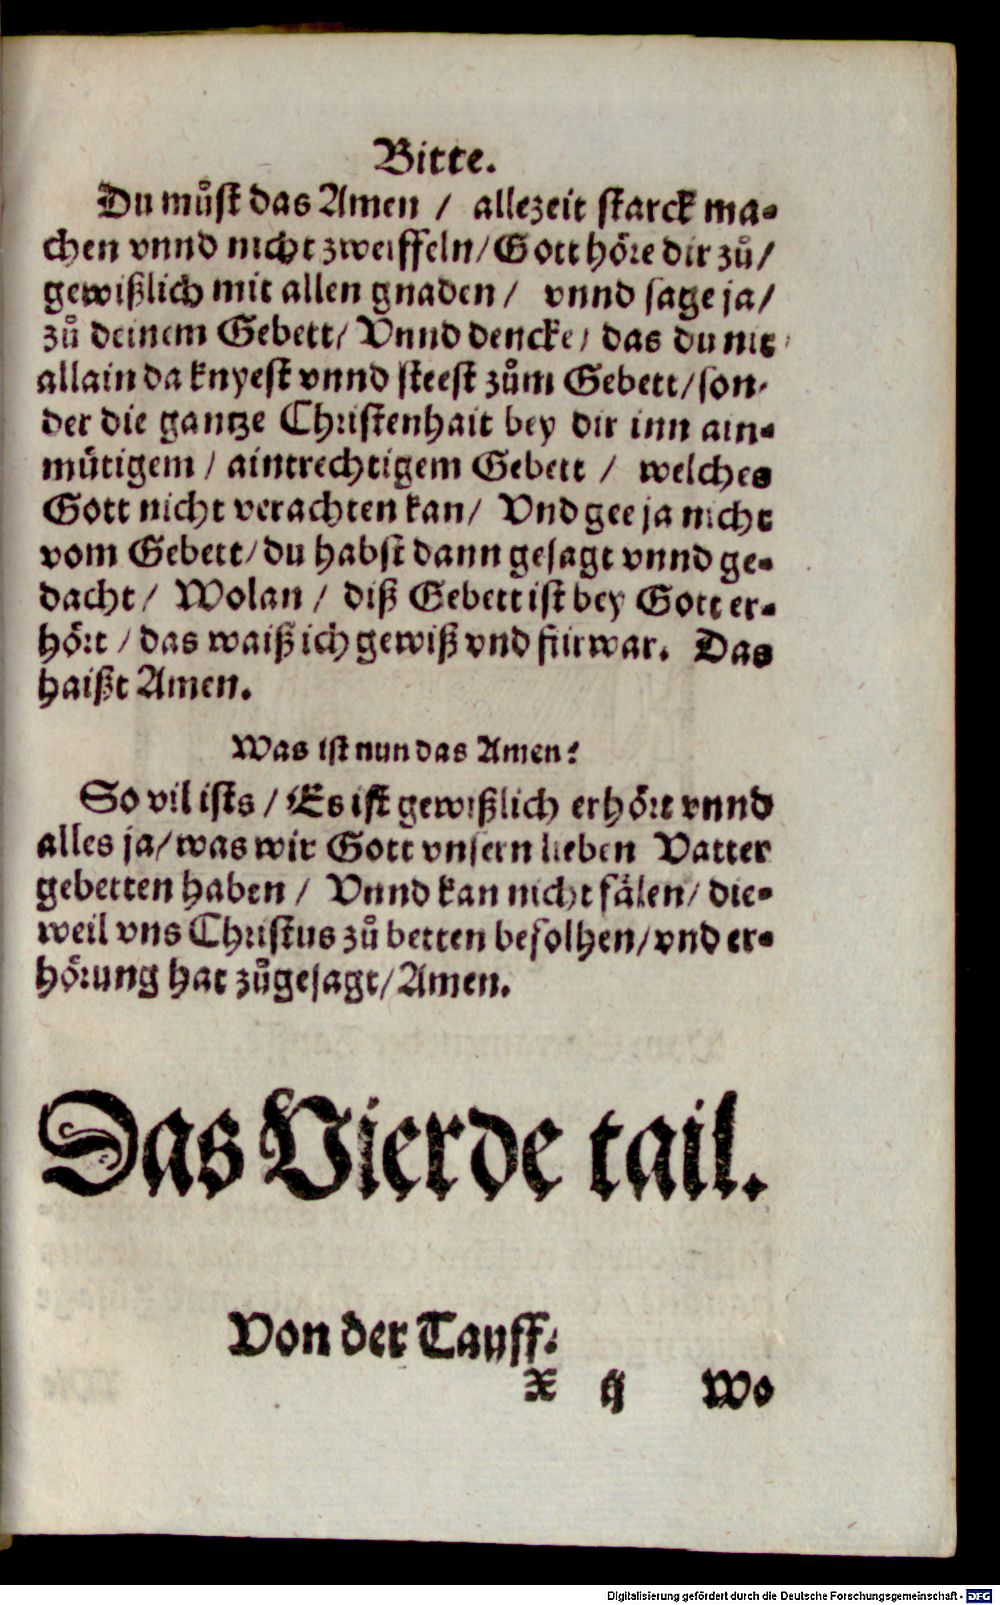 Bitte.
Du můst das Amen / allezeit starck ma-
chen vnnd nicht zweiffeln/ Gott höre dir zů/
gewißlich mit allen gnaden / vnnd sage ja/
zů deinem Gebett/ Vnnd dencke/ das du nit
allain da knyest vnnd steest zům Gebett/ son-
der die gantze Christenhait bey dir inn ain-
mütigem / aintrechtigem Gebett / welches
Gott nicht verachten kan/ Vnd gee ja nicht
vom Gebett/ du habst dann gesagt vnnd ge-
dacht / Wolan / diß Gebett ist bey Gott er-
hört / das waiß ich gewiß vnd fürwar. Das
haißt Amen.
Was ist nun das Amen?
So vil ists / Es ist gewißlich erhört vnnd
alles ja/ was wir Gott vnsern lieben Vatter
gebetten haben / Vnnd kan nicht fälen/ die-
weil vns Christus zů betten befolhen/ vnd er-
hörung hat zůgesagt/ Amen.
Das Vierde tail.
Von der Tauff.
X ij Wo
Digitalisierung gefördert durch die Deutsche Forschungsgemeinschaft - DFG